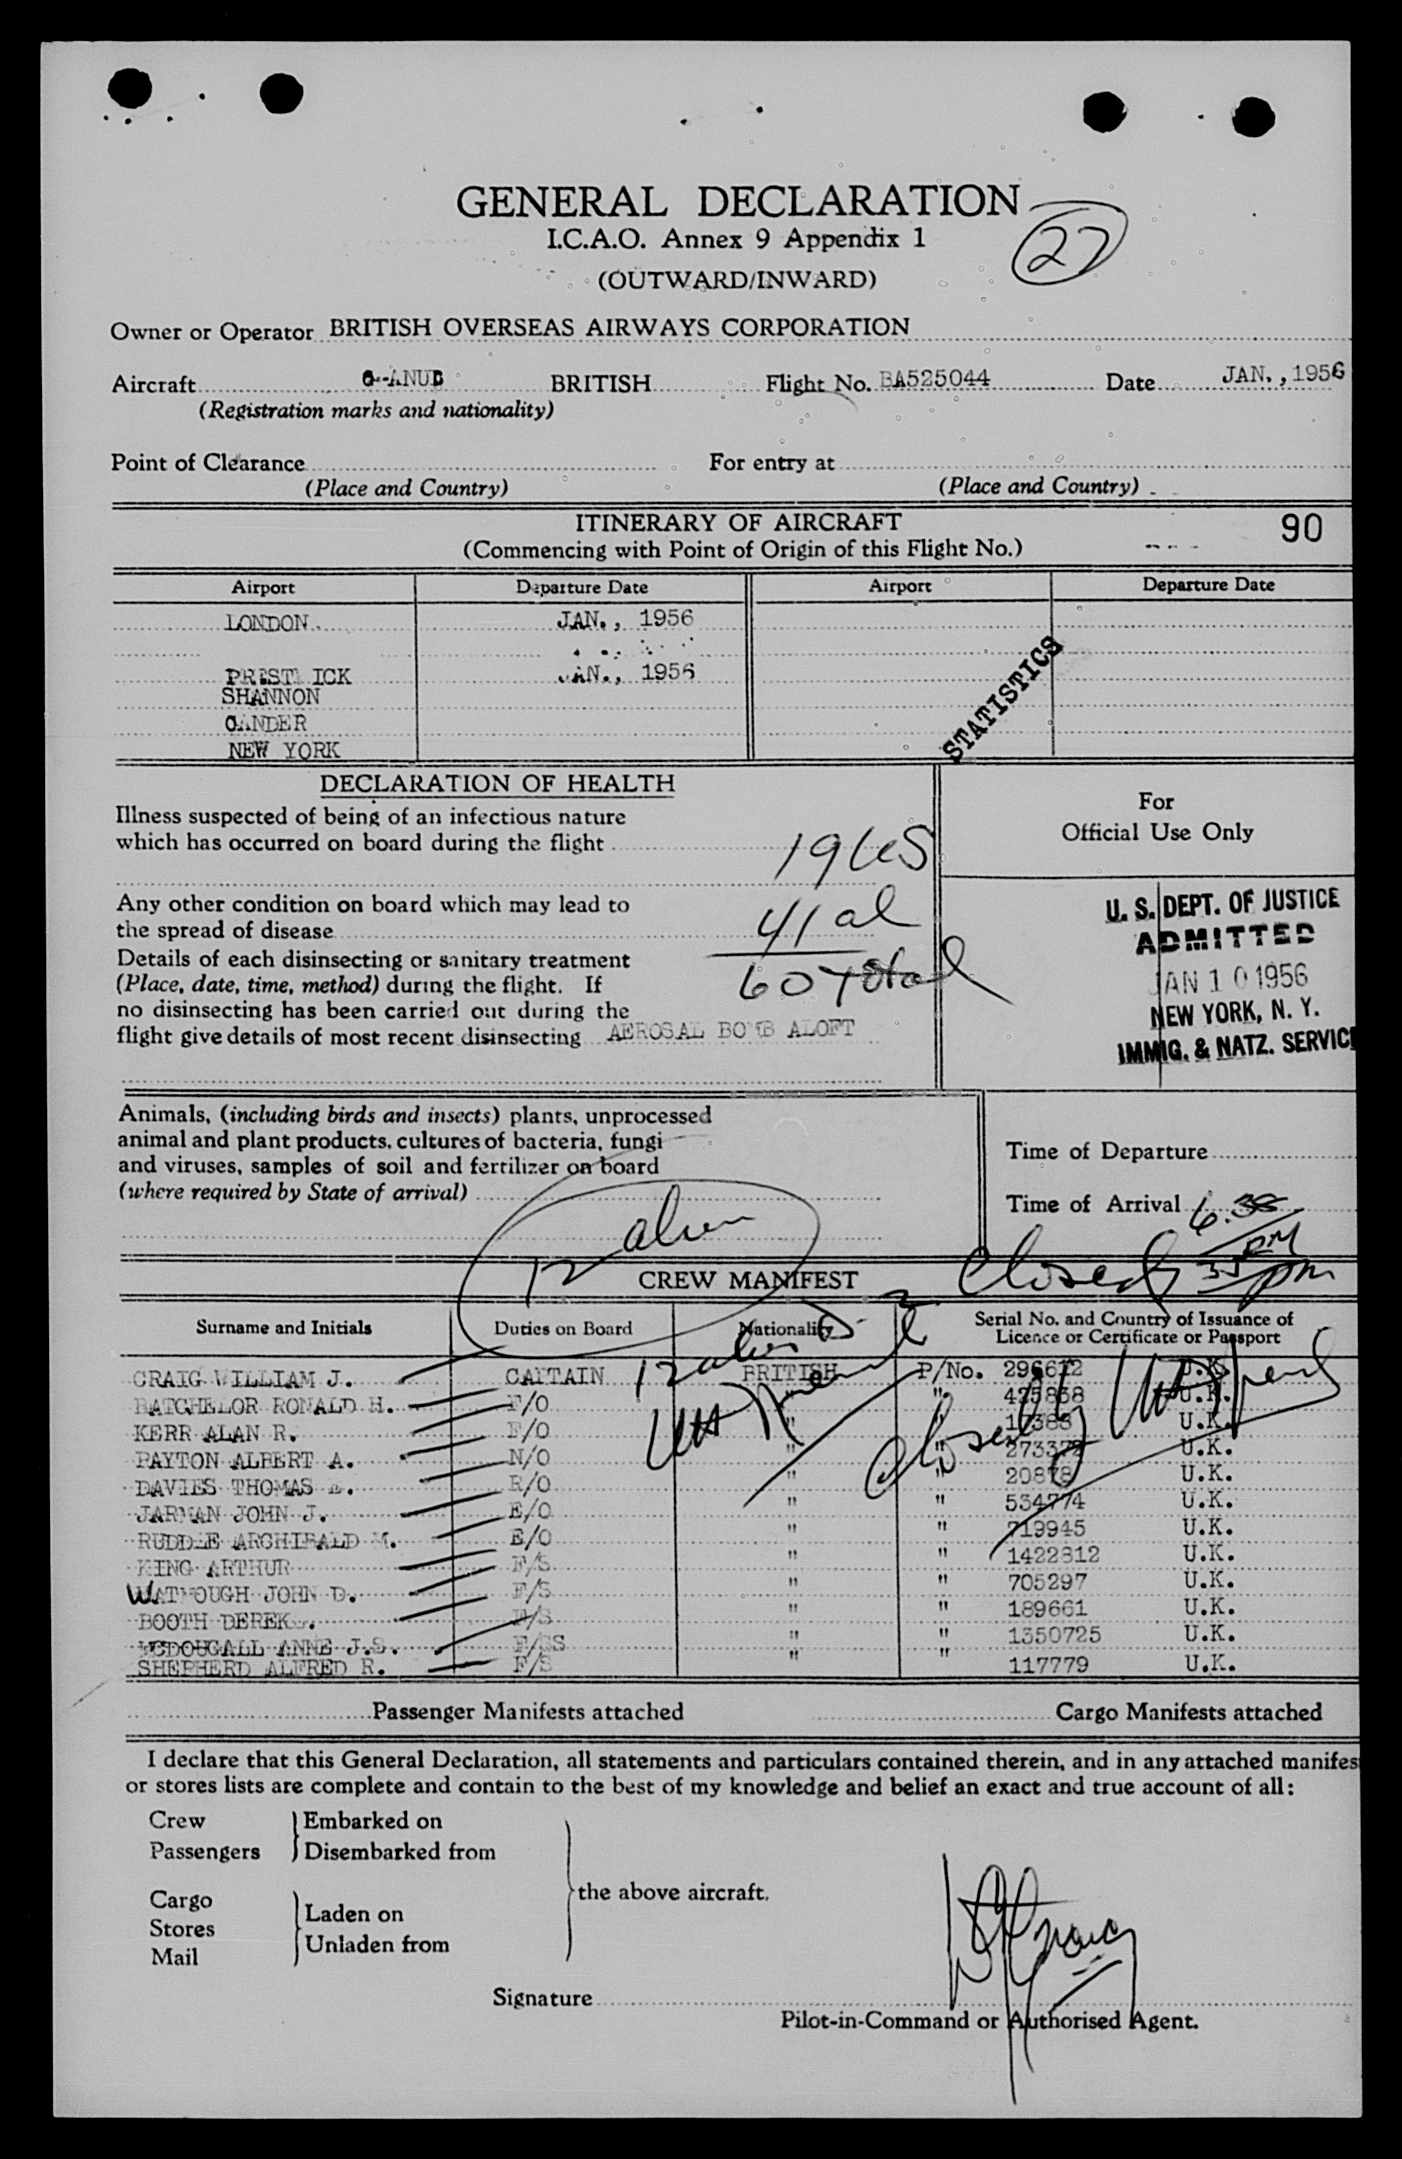 GENERAL DECLARATION
I.C.A.O. Annex 9 Appendix 1
27
(OUTWARD/INWARD)
Owner or Operator BRITISH OVERSEAS AIRWAYS CORPORATION
Aircraft G-ANUB BRITISH Flight No. BA525044 Date JAN., 1956
(Registration marks and nationality)
Point of Clearance For entry at
(Place and Country) (Place and Country)
ITINERARY OF AIRCRAFT
(Commencing with Point of Origin of this Flight No.)
90
Airport Departure Date Airport Departure Date
LONDON JAN., 1956
PREST ICK JAN., 1956
SHANNON
GANDER
NEW YORK
STATISTICS
DECLARATION OF HEALTH
For
Official Use Only
Illness suspected of being of an infectious nature
which has occurred on board during the flight
19 US
Any other condition on board which may lead to
the spread of disease
41 al
Details of each disinsecting or sanitary treatment
(Place, date, time, method) during the flight. If
no disinsecting has been carried out during the
flight give details of most recent disinsecting AEROSAL BOMB ALOFT
60 total
U. S. DEPT. OF JUSTICE
ADMITTED
JAN 10 1956
NEW YORK, N. Y.
IMMIG. & NATZ. SERVIC
Animals, (including birds and insects) plants, unprocessed
animal and plant products, cultures of bacteria, fungi
and viruses, samples of soil and fertilizer on board
(where required by State of arrival)
Time of Departure
Time of Arrival 6.38 PM
12 alien
CREW MANIFEST
Closed
pm
Surname and Initials Duties on Board Nationality Serial No. and Country of Issuance of
Licence or Certificate or Passport
CRAIG WILLIAM J. CAPTAIN BRITISH P/No. 296612 U.K.
BATCHELOR RONALD H. F/O " " 425858 U.K.
KERR ALAN R. F/O " " 17383 U.K.
PAYTON ALBERT A. N/O " " 273372 U.K.
DAVIES THOMAS R/O " " 20878 U.K.
JARMAN JOHN J. E/O " " 534774 U.K.
RUDDLE ARCHIBALD M. E/O " " 719945 U.K.
KING ARTHUR F/S " " 1422312 U.K.
WATHOUGH JOHN D. F/S " " 705297 U.K.
BOOTH DEREK F/S " " 189661 U.K.
MCDOUGALL ANNE J.S. F/SS " " 1350725 U.K.
SHEPHERD ALFRED R. F/S " " 117779 U.K.
12 aliens
Closed
Passenger Manifests attached Cargo Manifests attached
I declare that this General Declaration, all statements and particulars contained therein, and in any attached manifes
or stores lists are complete and contain to the best of my knowledge and belief an exact and true account of all:
Crew Embarked on
Passengers Disembarked from
the above aircraft.
Cargo
Stores Laden on
Mail Unladen from
Signature
Pilot-in-Command or Authorised Agent.